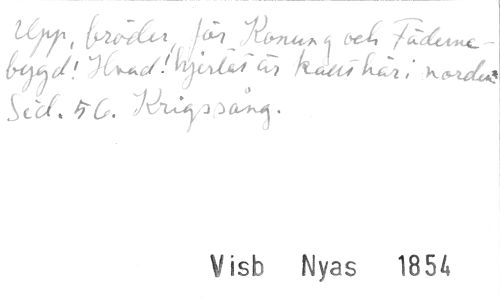 Upp, bröder, för Konung och Fäderne-
bygd! Hvad! hjertat är kallt här i norden?
Sid. 56. Krigssång.
Visb Nyas 1854